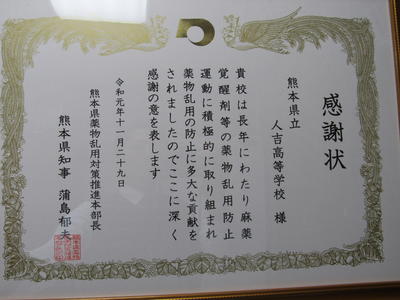 感謝状
熊本県立
人吉高等学校 様
貴校は長年にわたり麻薬
覚醒剤等の薬物乱用防止
運動に積極的に取り組まれ
薬物乱用の防止に多大な貢献を
されましたのでここに深く
感謝の意を表します
令和元年十一月二十九日
熊本県薬物乱用対策推進本部長
熊本県知事 蒲島郁夫